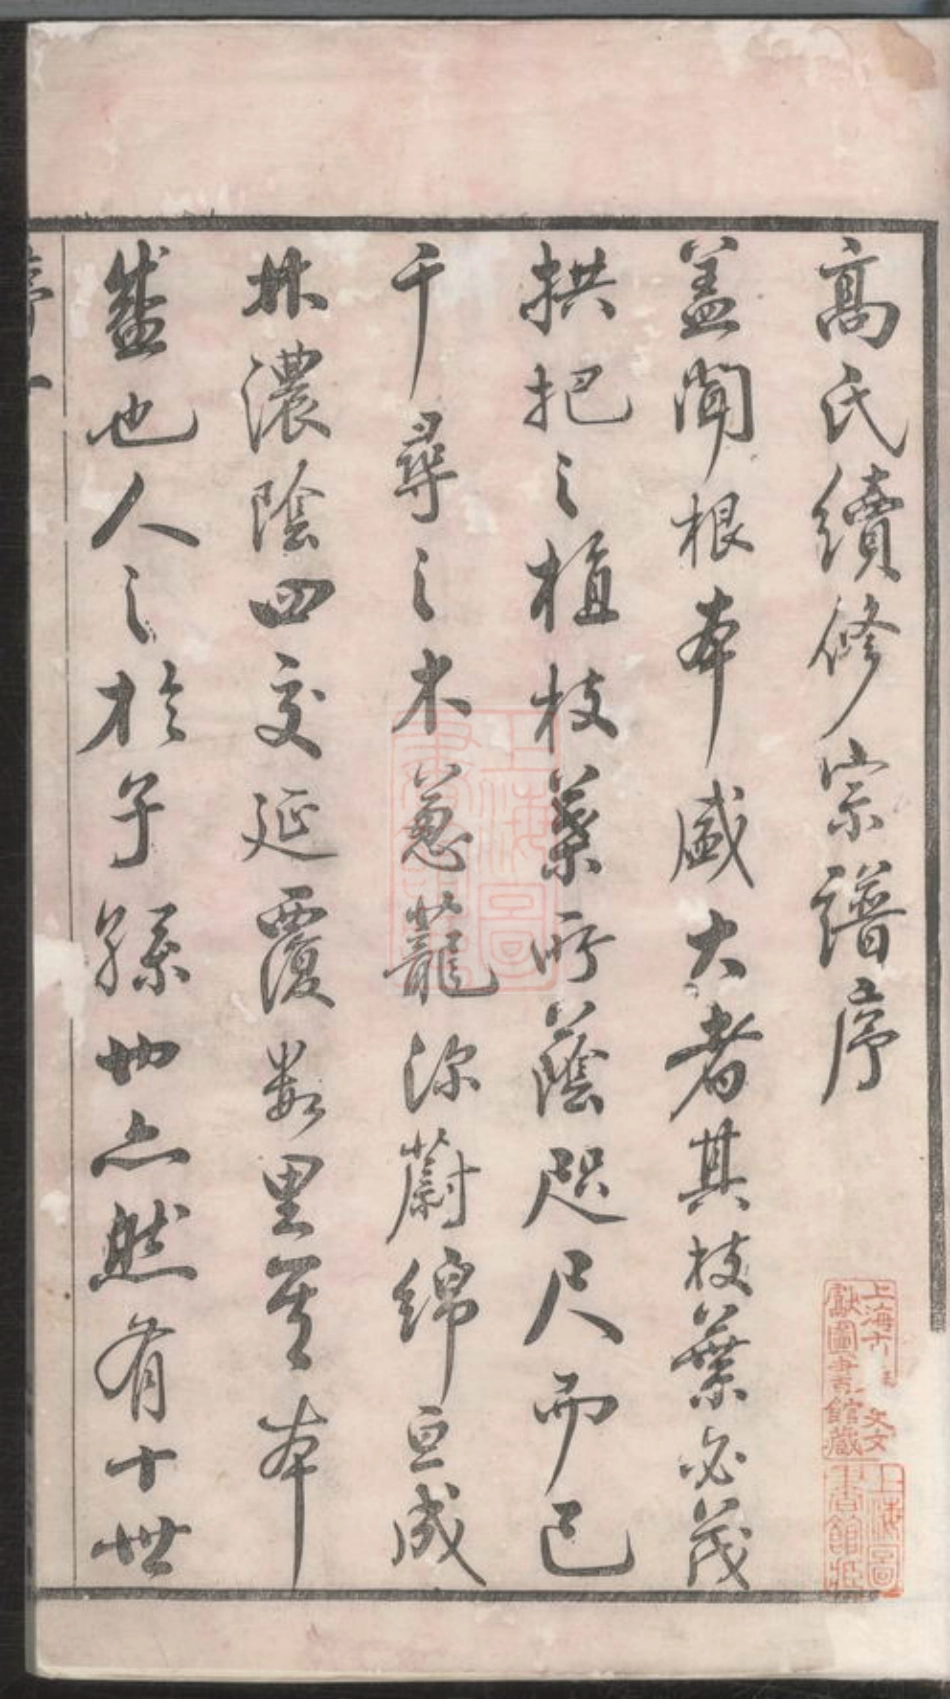 高氏續修宗譜序
蓋聞根本盛大者其枝葉必茂
拱把之植枝葉所蔭咫尺而已
千尋之木蔥蘢深蔚綿亘成
林濃陰四交延覆數里其本
盛也人之於子孫也亦然有十世
上海圖
書館藏